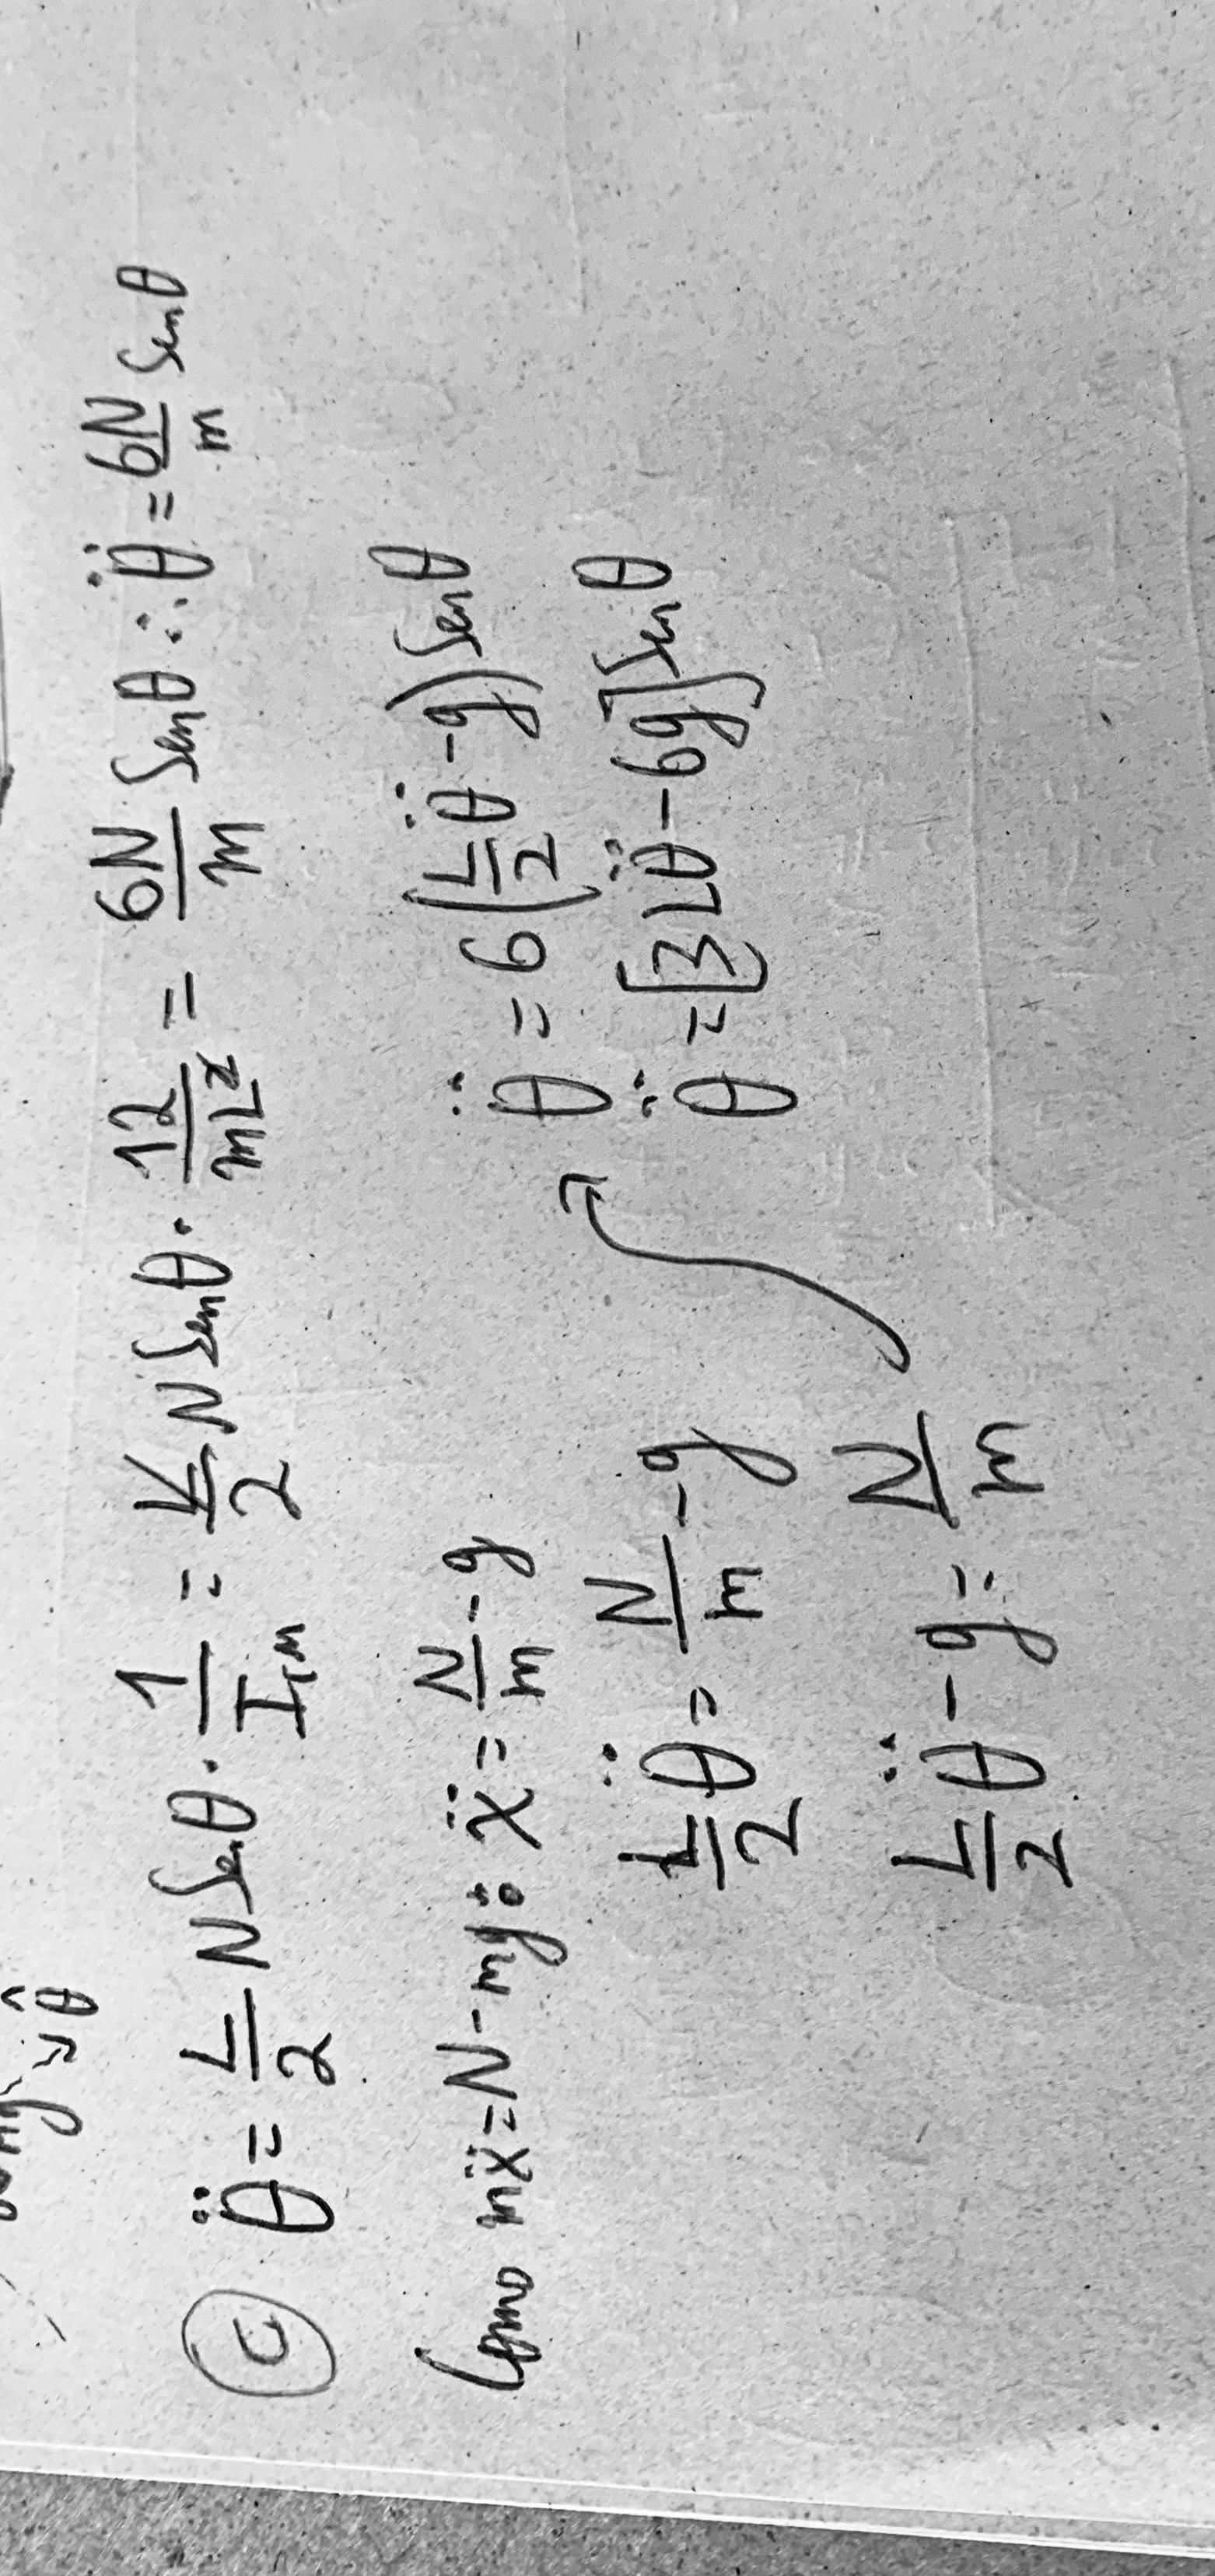 mg θ̂
(c) θ̈ = L/2 N Sen θ · 1/I_m = L/2 N Sen θ · 12/mL² = 6N/m Sen θ ∴ θ̈ = 6N/m Sen θ
Como mẍ = N - mg ∴ ẍ = N/m - g
L/2 θ̈ = N/m - g
L/2 θ̈ - g = N/m
θ̈ = 6(L/2 θ̈ - g) Sen θ
θ̈ = [3Lθ̈ - 6g] Sen θ